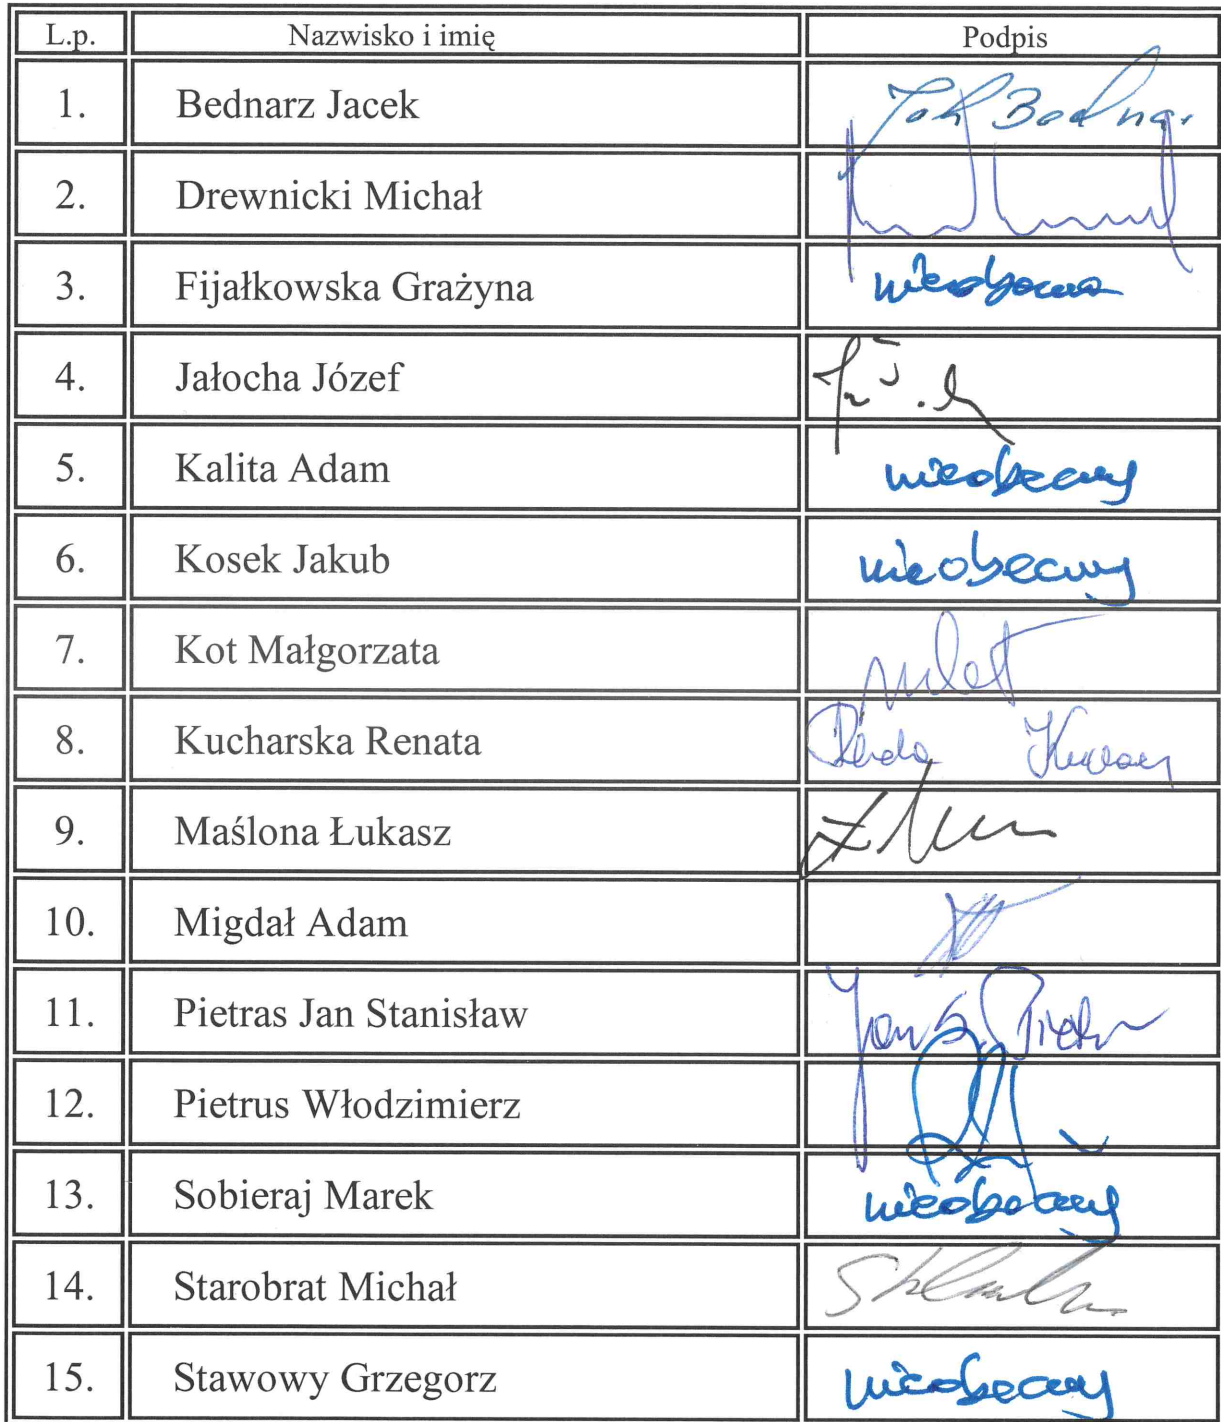 L.p. Nazwisko i imię Podpis
1. Bednarz Jacek
2. Drewnicki Michał
3. Fijałkowska Grażyna nieobecna
4. Jałocha Józef
5. Kalita Adam nieobecny
6. Kosek Jakub nieobecny
7. Kot Małgorzata
8. Kucharska Renata
9. Maślona Łukasz
10. Migdał Adam
11. Pietras Jan Stanisław Jan S.
12. Pietrus Włodzimierz
13. Sobieraj Marek nieobecny
14. Starobrat Michał
15. Stawowy Grzegorz nieobecny